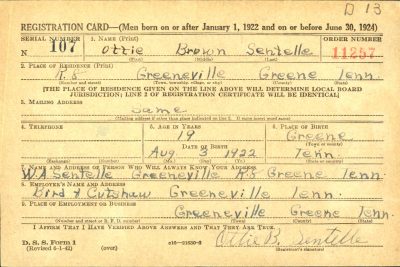 D 13
REGISTRATION CARD—(Men born on or after January 1, 1922 and on or before June 30, 1924)
SERIAL NUMBER 1. NAME (Print) ORDER NUMBER
107 Ottie Brown Sentelle 11257
(First) (Middle) (Last)
2. PLACE OF RESIDENCE (Print)
R.5 Greeneville Greene Tenn.
(Number and street) (Town, township, village, or city) (County) (State)
[THE PLACE OF RESIDENCE GIVEN ON THE LINE ABOVE WILL DETERMINE LOCAL BOARD
JURISDICTION; LINE 2 OF REGISTRATION CERTIFICATE WILL BE IDENTICAL]
3. MAILING ADDRESS
same
[Mailing address if other than place indicated on line 2. If same insert word same]
4. TELEPHONE 5. AGE IN YEARS 6. PLACE OF BIRTH
19 Greene
DATE OF BIRTH (Town or county)
Aug 3 1922 Tenn
(Exchange) (Number) (Mo.) (Day) (Yr.) (State or country)
7. NAME AND ADDRESS OF PERSON WHO WILL ALWAYS KNOW YOUR ADDRESS
W.A. Sentelle Greeneville R5 Greene Tenn.
8. EMPLOYER'S NAME AND ADDRESS
Bird & Cutshaw Greeneville Tenn.
9. PLACE OF EMPLOYMENT OR BUSINESS
Greeneville Greene Tenn.
(Number and street or R. F. D. number) (Town) (County) (State)
I AFFIRM THAT I HAVE VERIFIED ABOVE ANSWERS AND THAT THEY ARE TRUE.
D. S. S. Form 1
(Revised 6-1-42) (over) Ottie B. Sentelle
(Registrant's signature)